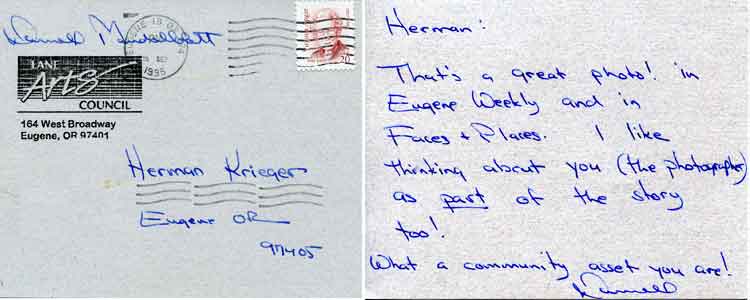 LANE
Arts
COUNCIL
164 West Broadway
Eugene, OR 97401
1995
20
Herman Krieger
Eugene OR
97405
Herman:
That's a great photo! in
Eugene Weekly and in
Faces + Places. I like
thinking about you (the photographer)
as part of the story
too!
What a community asset you are!